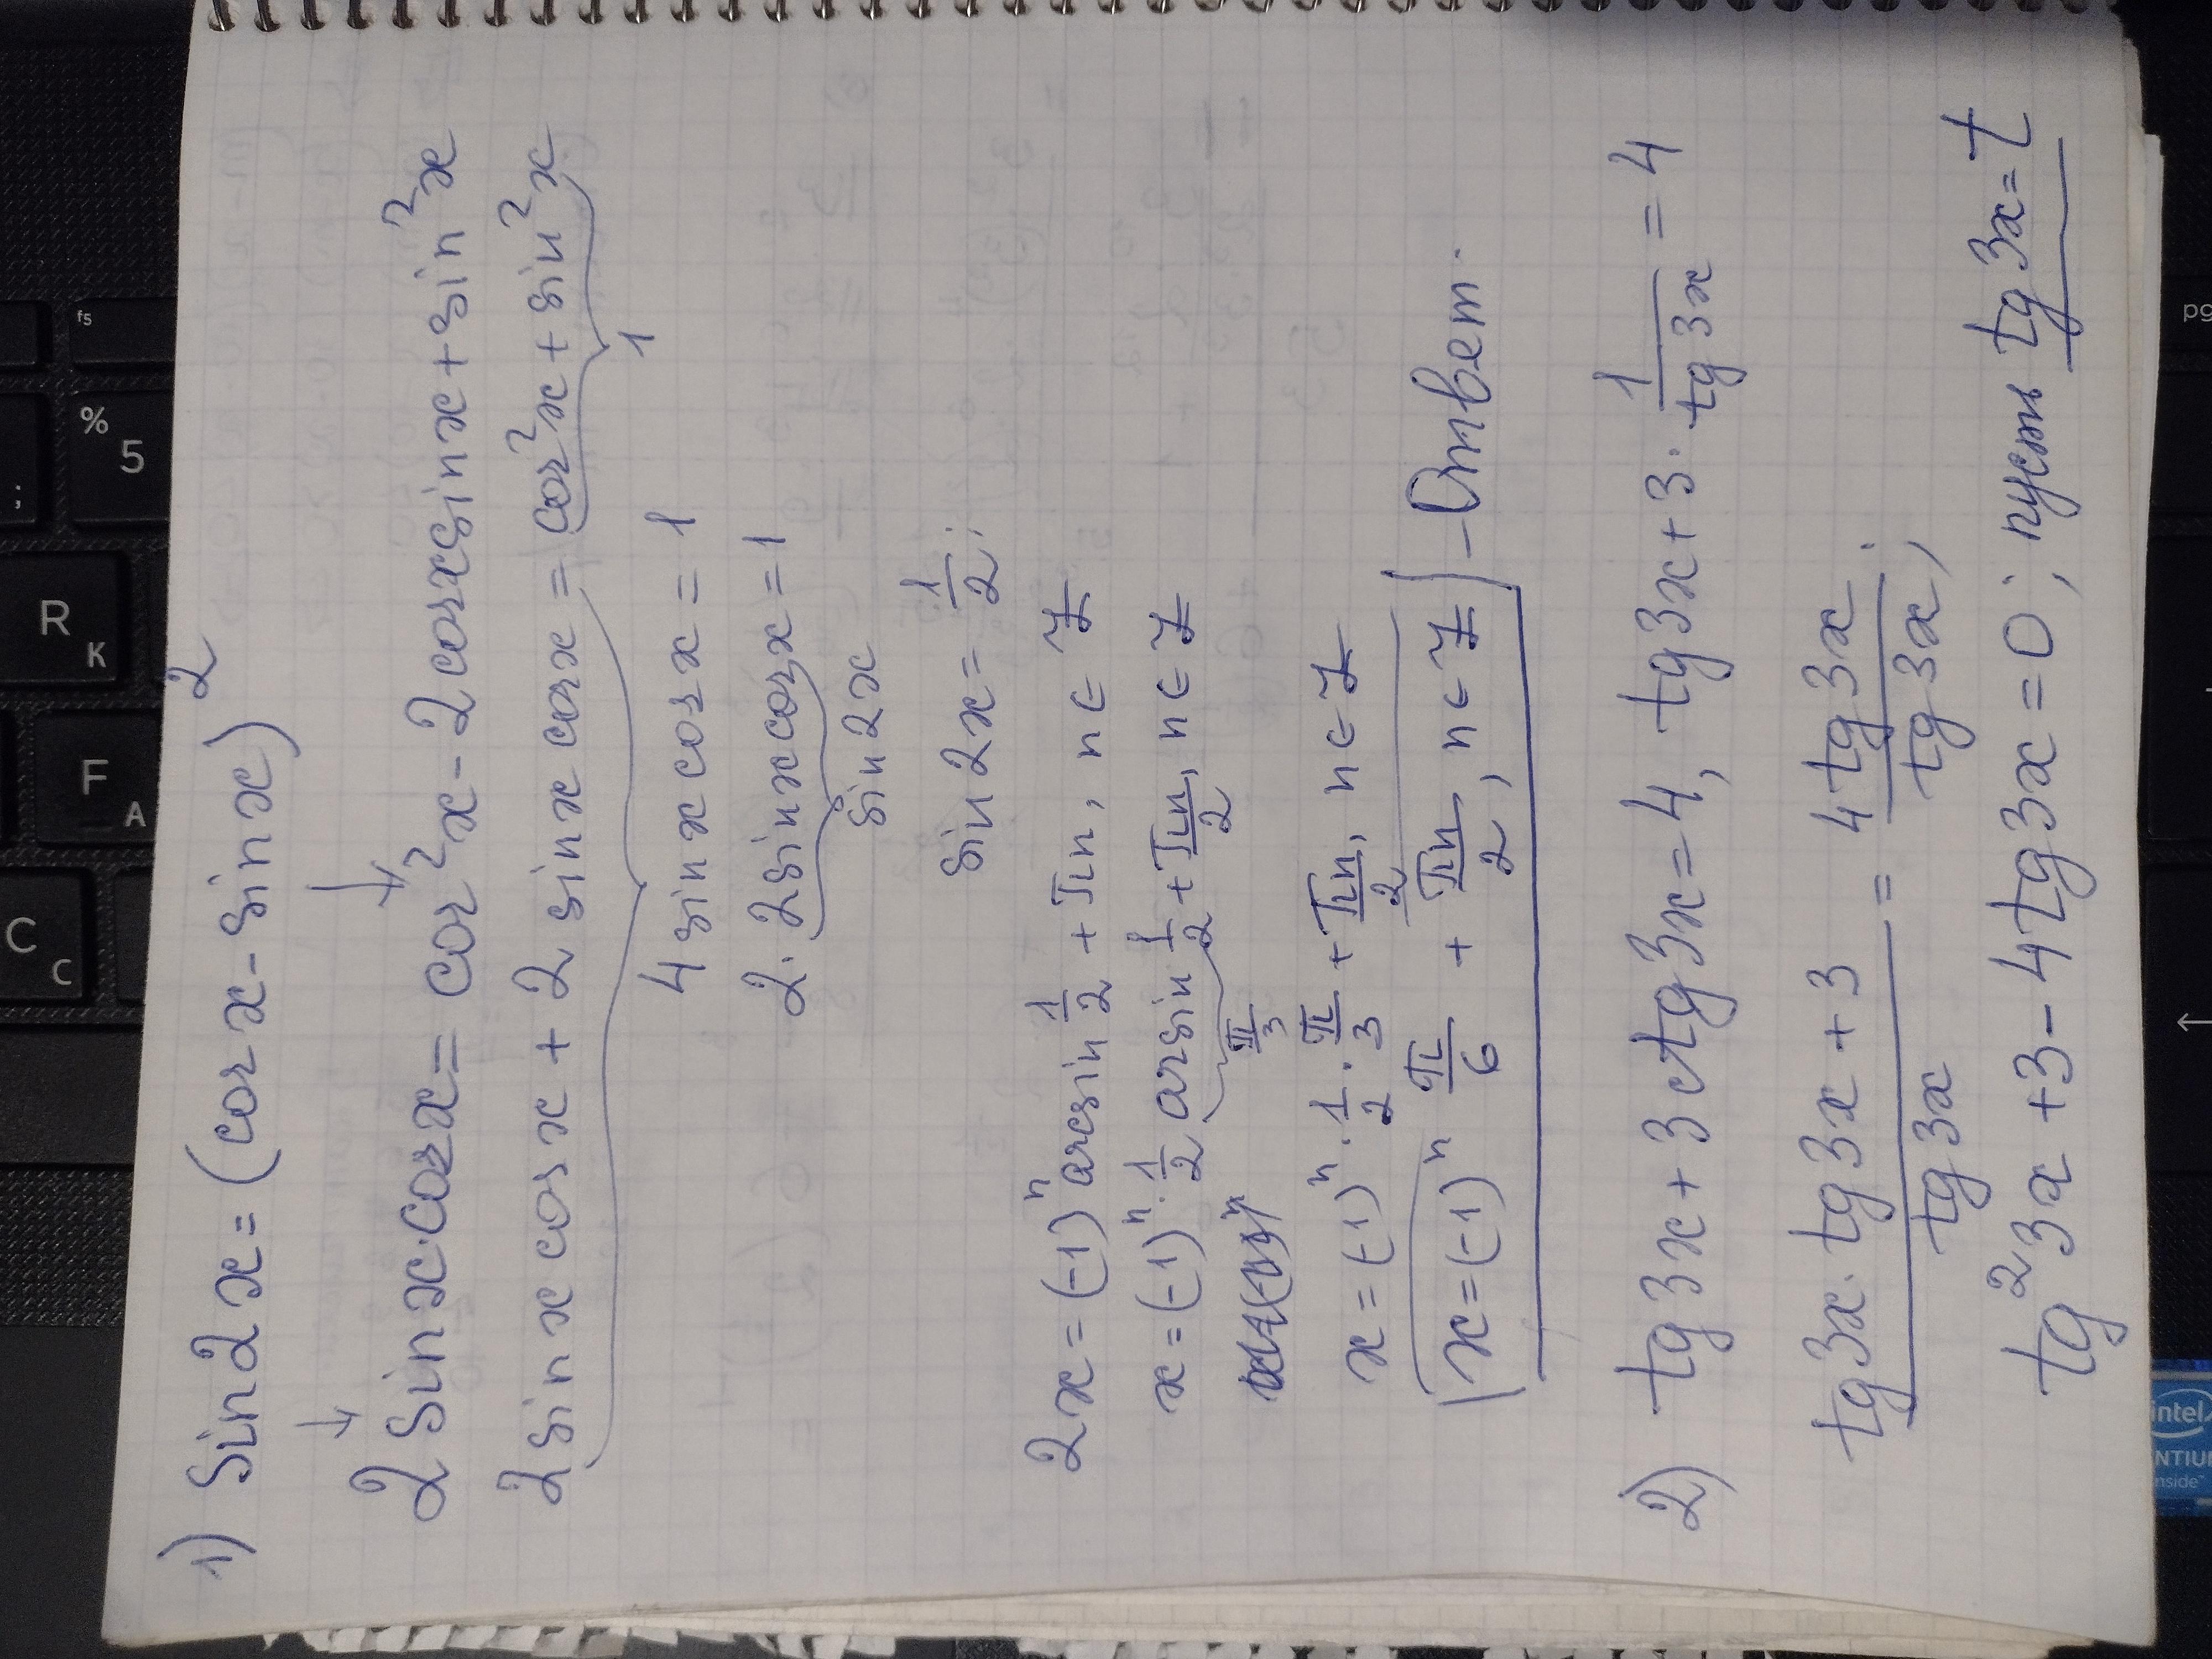 1) sin2x = (cos x - sin x)²
2 sin x · cos x = cos²x - 2 cos x sin x + sin²x
2 sin x cos x + 2 sin x cos x = cos²x + sin²x
1
4 sin x cos x = 1
2 · 2 sin x cos x = 1
sin 2x
sin 2x = 1/2;
2x = (-1)ⁿ arcsin 1/2 + πn, n ∈ Z
x = (-1)ⁿ · 1/2 arsin 1/2 + πn/2, n ∈ Z
π/3
x = (-1)ⁿ · 1/2 · π/3 + πn/2, n ∈ Z
x = (-1)ⁿ π/6 + πn/2, n ∈ Z - Ответ.
2) tg 3x + 3 ctg 3x = 4, tg 3x + 3 · 1/tg 3x = 4
(tg 3x · tg 3x + 3)/tg 3x = 4 tg 3x/tg 3x;
tg²3x + 3 - 4 tg 3x = 0; пусть tg 3x = t
f5
% 5
R K
F A
C C
pg
intel
inside